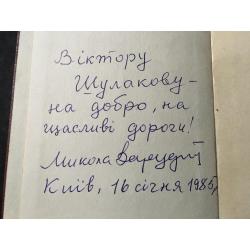 Віктору
Шулакову –
на добро, на
щасливі дороги!
Микола Зарудний
Київ, 16 січня 1986р.